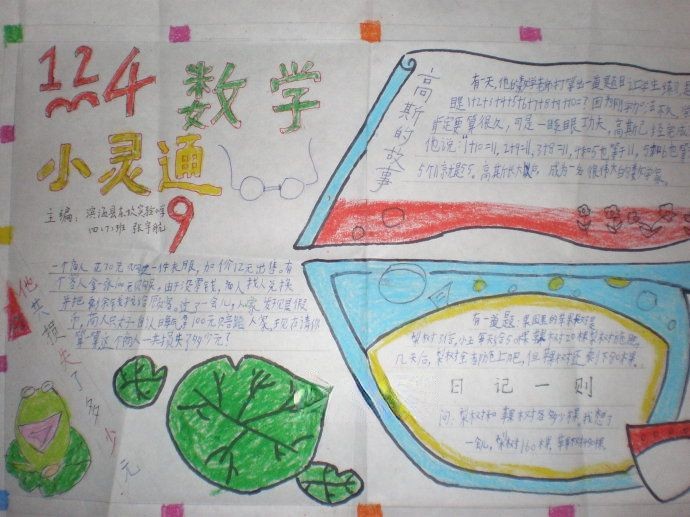 124
数学
小灵通
主编:滨海县东坎实验小学
四(7)班 张宇航
9
高斯的故事
有一天,他的数学老师打算出一道题目让学生练习,是
题1+2+3+4+5+6+7+8+9+10=?因为加
肯定要算很久,可是一眨眼功夫,高斯已经
他说:1+10=11,2+9=11,3+8=11,4+7=11 5也等于11
5个11就是55。高斯长大以后,成为一名很伟大的数学家。
一个商人花70元购进一件衣服,加价12元出售。有
个客人拿一张100元购买,由于没零钱,商人找人兑换
并把剩余钱找给顾客。过了一会儿,人家发现是假
币,商人只好自认晦气,拿100元赔给人家,现在请你
算算这个商人一共损失了多少元?
他
共
损
失
了
多
少
元
有一道题:果园里的苹果树是
梨树3倍,小王每天给50棵苹果树20棵梨树施肥,
几天后,梨树全部施上肥,但苹果树还剩下80棵。
日记一则
问:梨树和苹果树各多少棵?我想了
一会儿,梨树160棵,苹果树